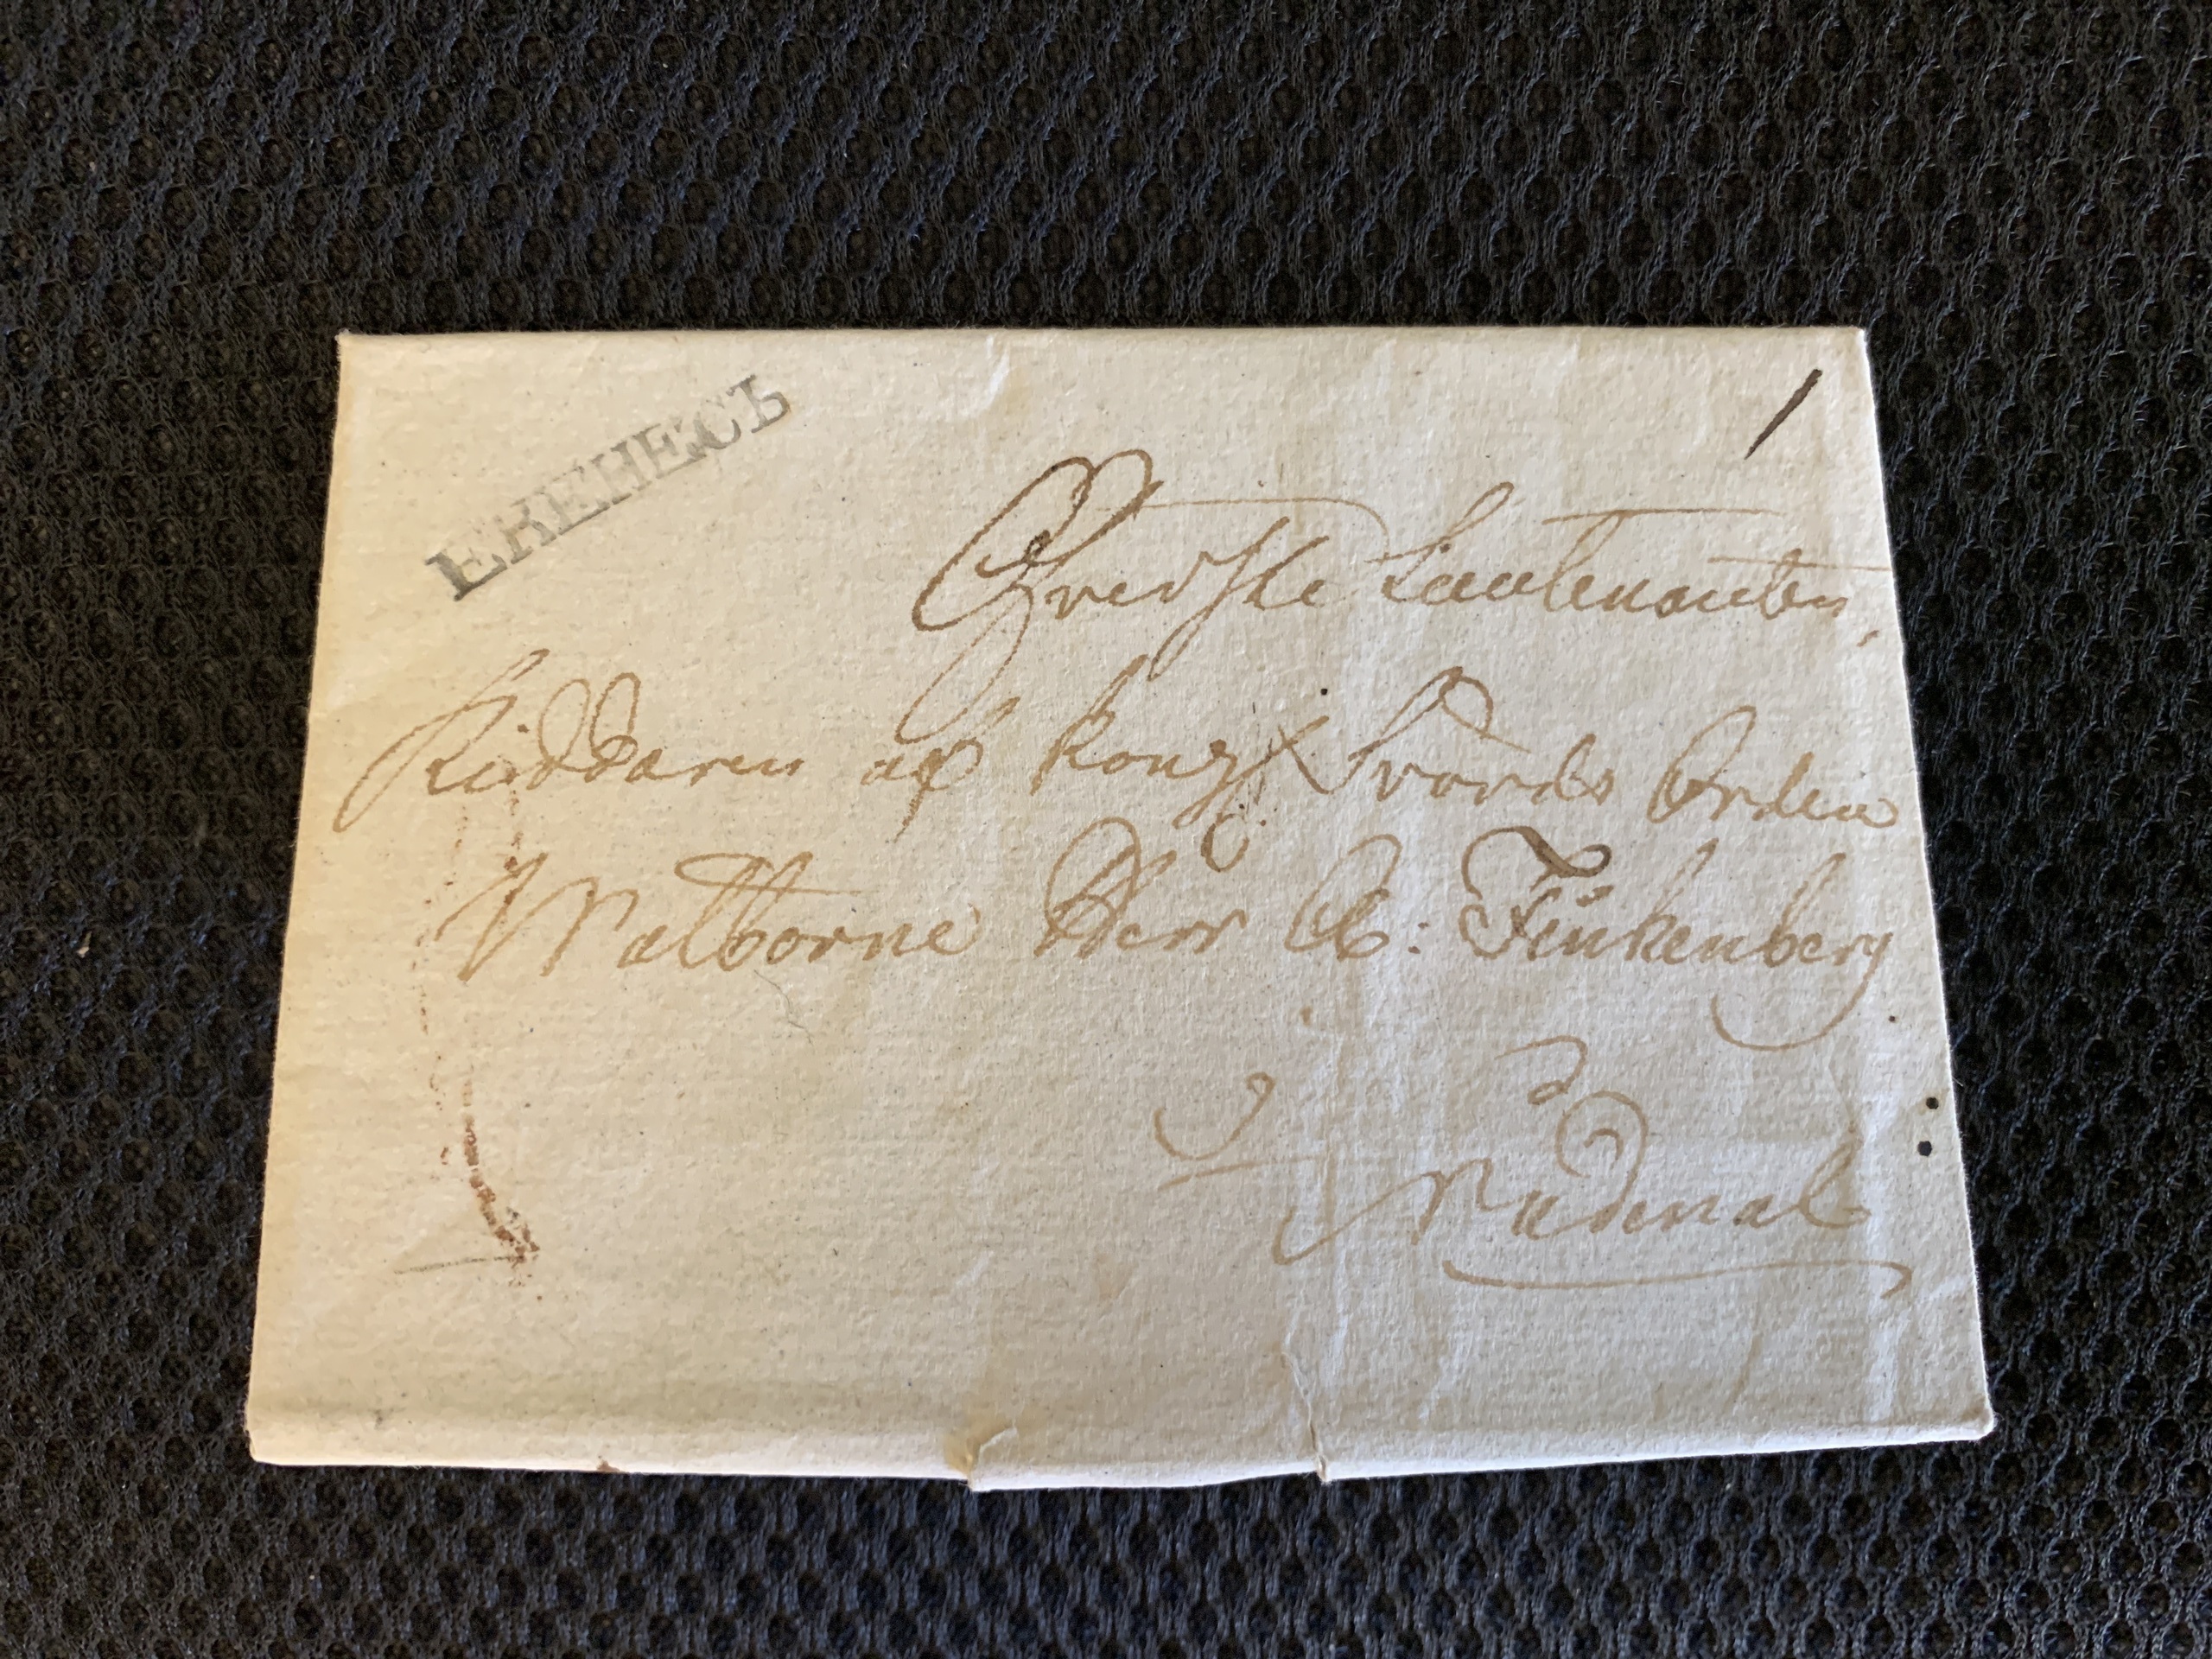 ЕКЕНЕСЪ
1
Öfverste Lieutenanten,
Riddaren af Kongl Svärds Orden
Wälborne Herr A: Finkenberg
Nådendal